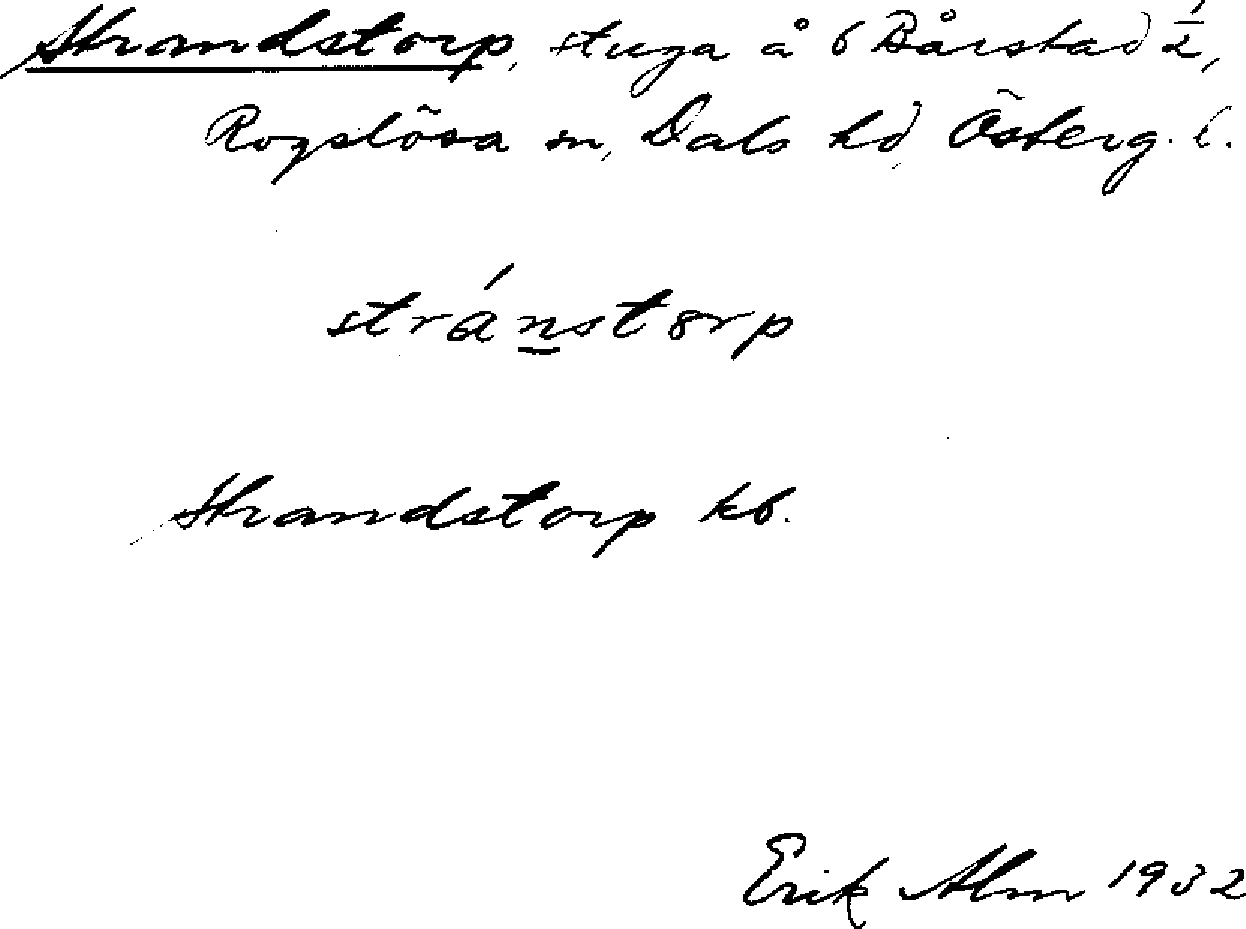 Strandstorp, stuga å 6 Bårstad ½,
Rogslösa sn, Dals hd, Österg. l.
stránstorp
Strandstorp kb.
Erik Alm 1932